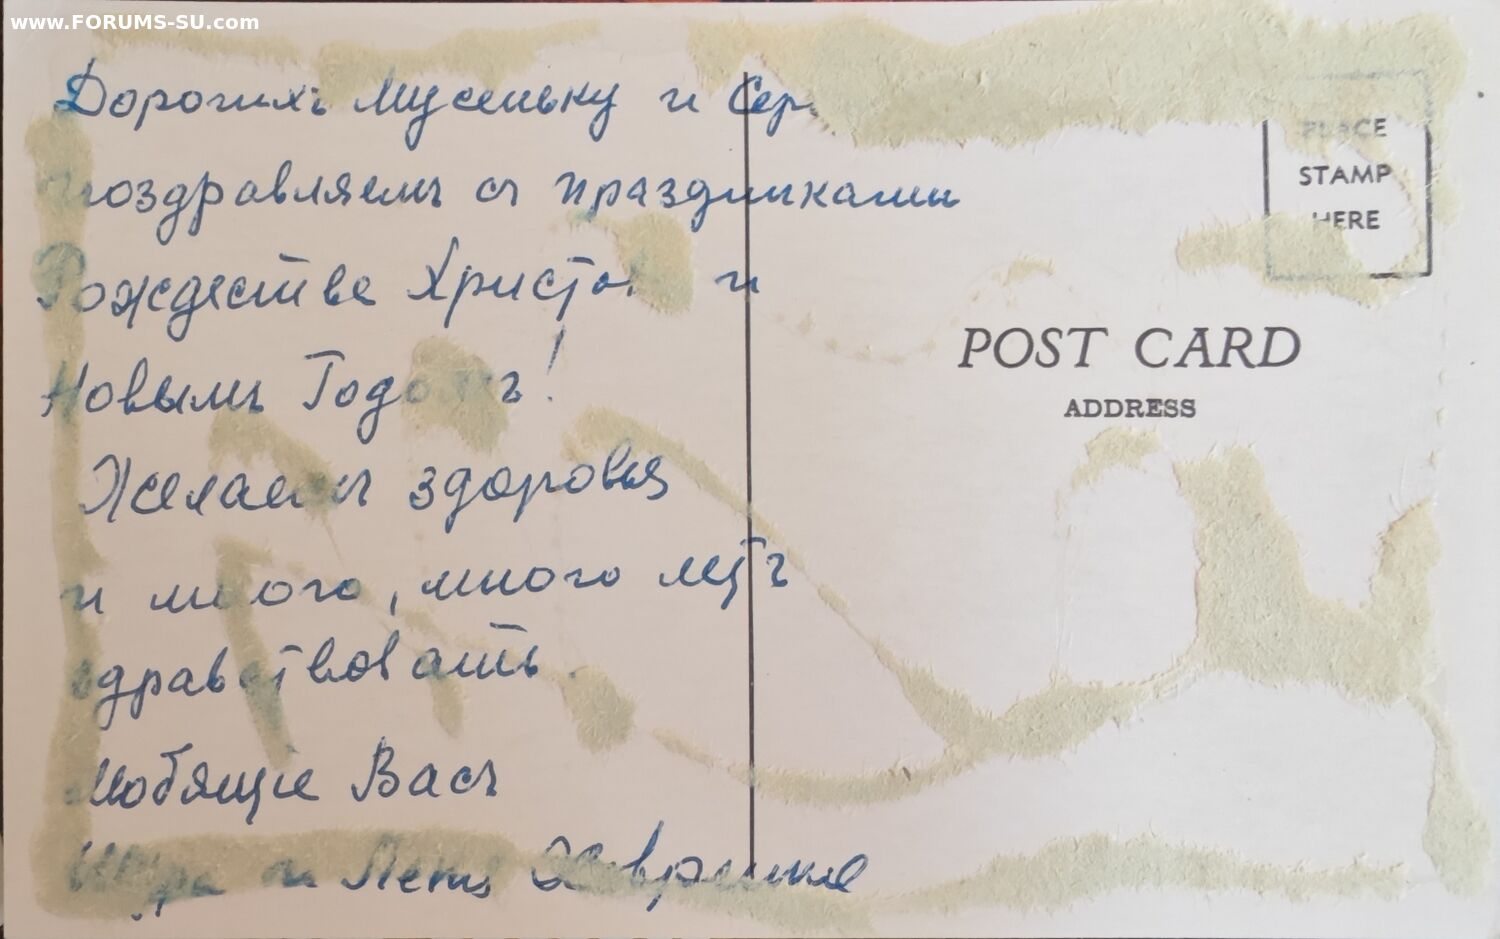 www.FORUMS-SU.com
Дорогихъ Мусеньку и
поздравляемъ съ праздниками
Рождества Христова и
Новымъ Годомъ!
Желаемъ здоровья
и много, много лѣтъ
здравствовать.
Любящіе Васъ
Шура и Леня
PLACE
STAMP
HERE
POST CARD
ADDRESS